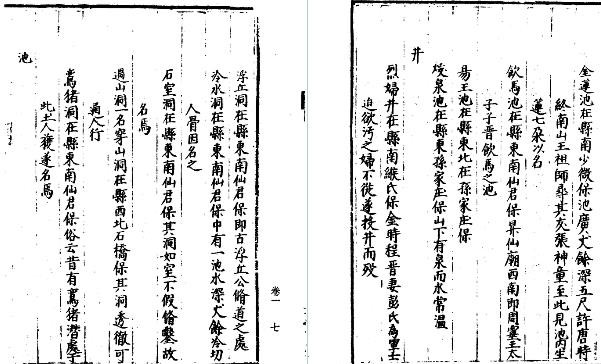 金蓮池在縣南少微保池廣丈餘深五尺許唐時
終南山王祖師尋其友張神童至此見池內生
蓮七朶以名
飲馬池在縣東南仙君保昇仙廟西南即周靈王太
子子晉飲馬之池
易王池在縣東北在孫家庄保
煖泉池在縣東孫家庄保山下有泉而水常溫
井
烈婦井在縣南緱氏保金時程晉妻彭氏為軍士
迫欲污之婦不從遂投井而歿
卷一 七
浮丘洞在縣東南仙君保即古浮丘公脩道之處
冷水洞在縣東南仙君保中有一池水深丈餘冷切
人骨因名之
石室洞在縣東南仙君保其洞如室不假脩鑿故
名焉
過山洞一名穿山洞在縣西北石橋保其洞透徹可
通人行
猪洞在縣東南仙君保俗云昔有猪潛處于
此土人獲遂名焉
池